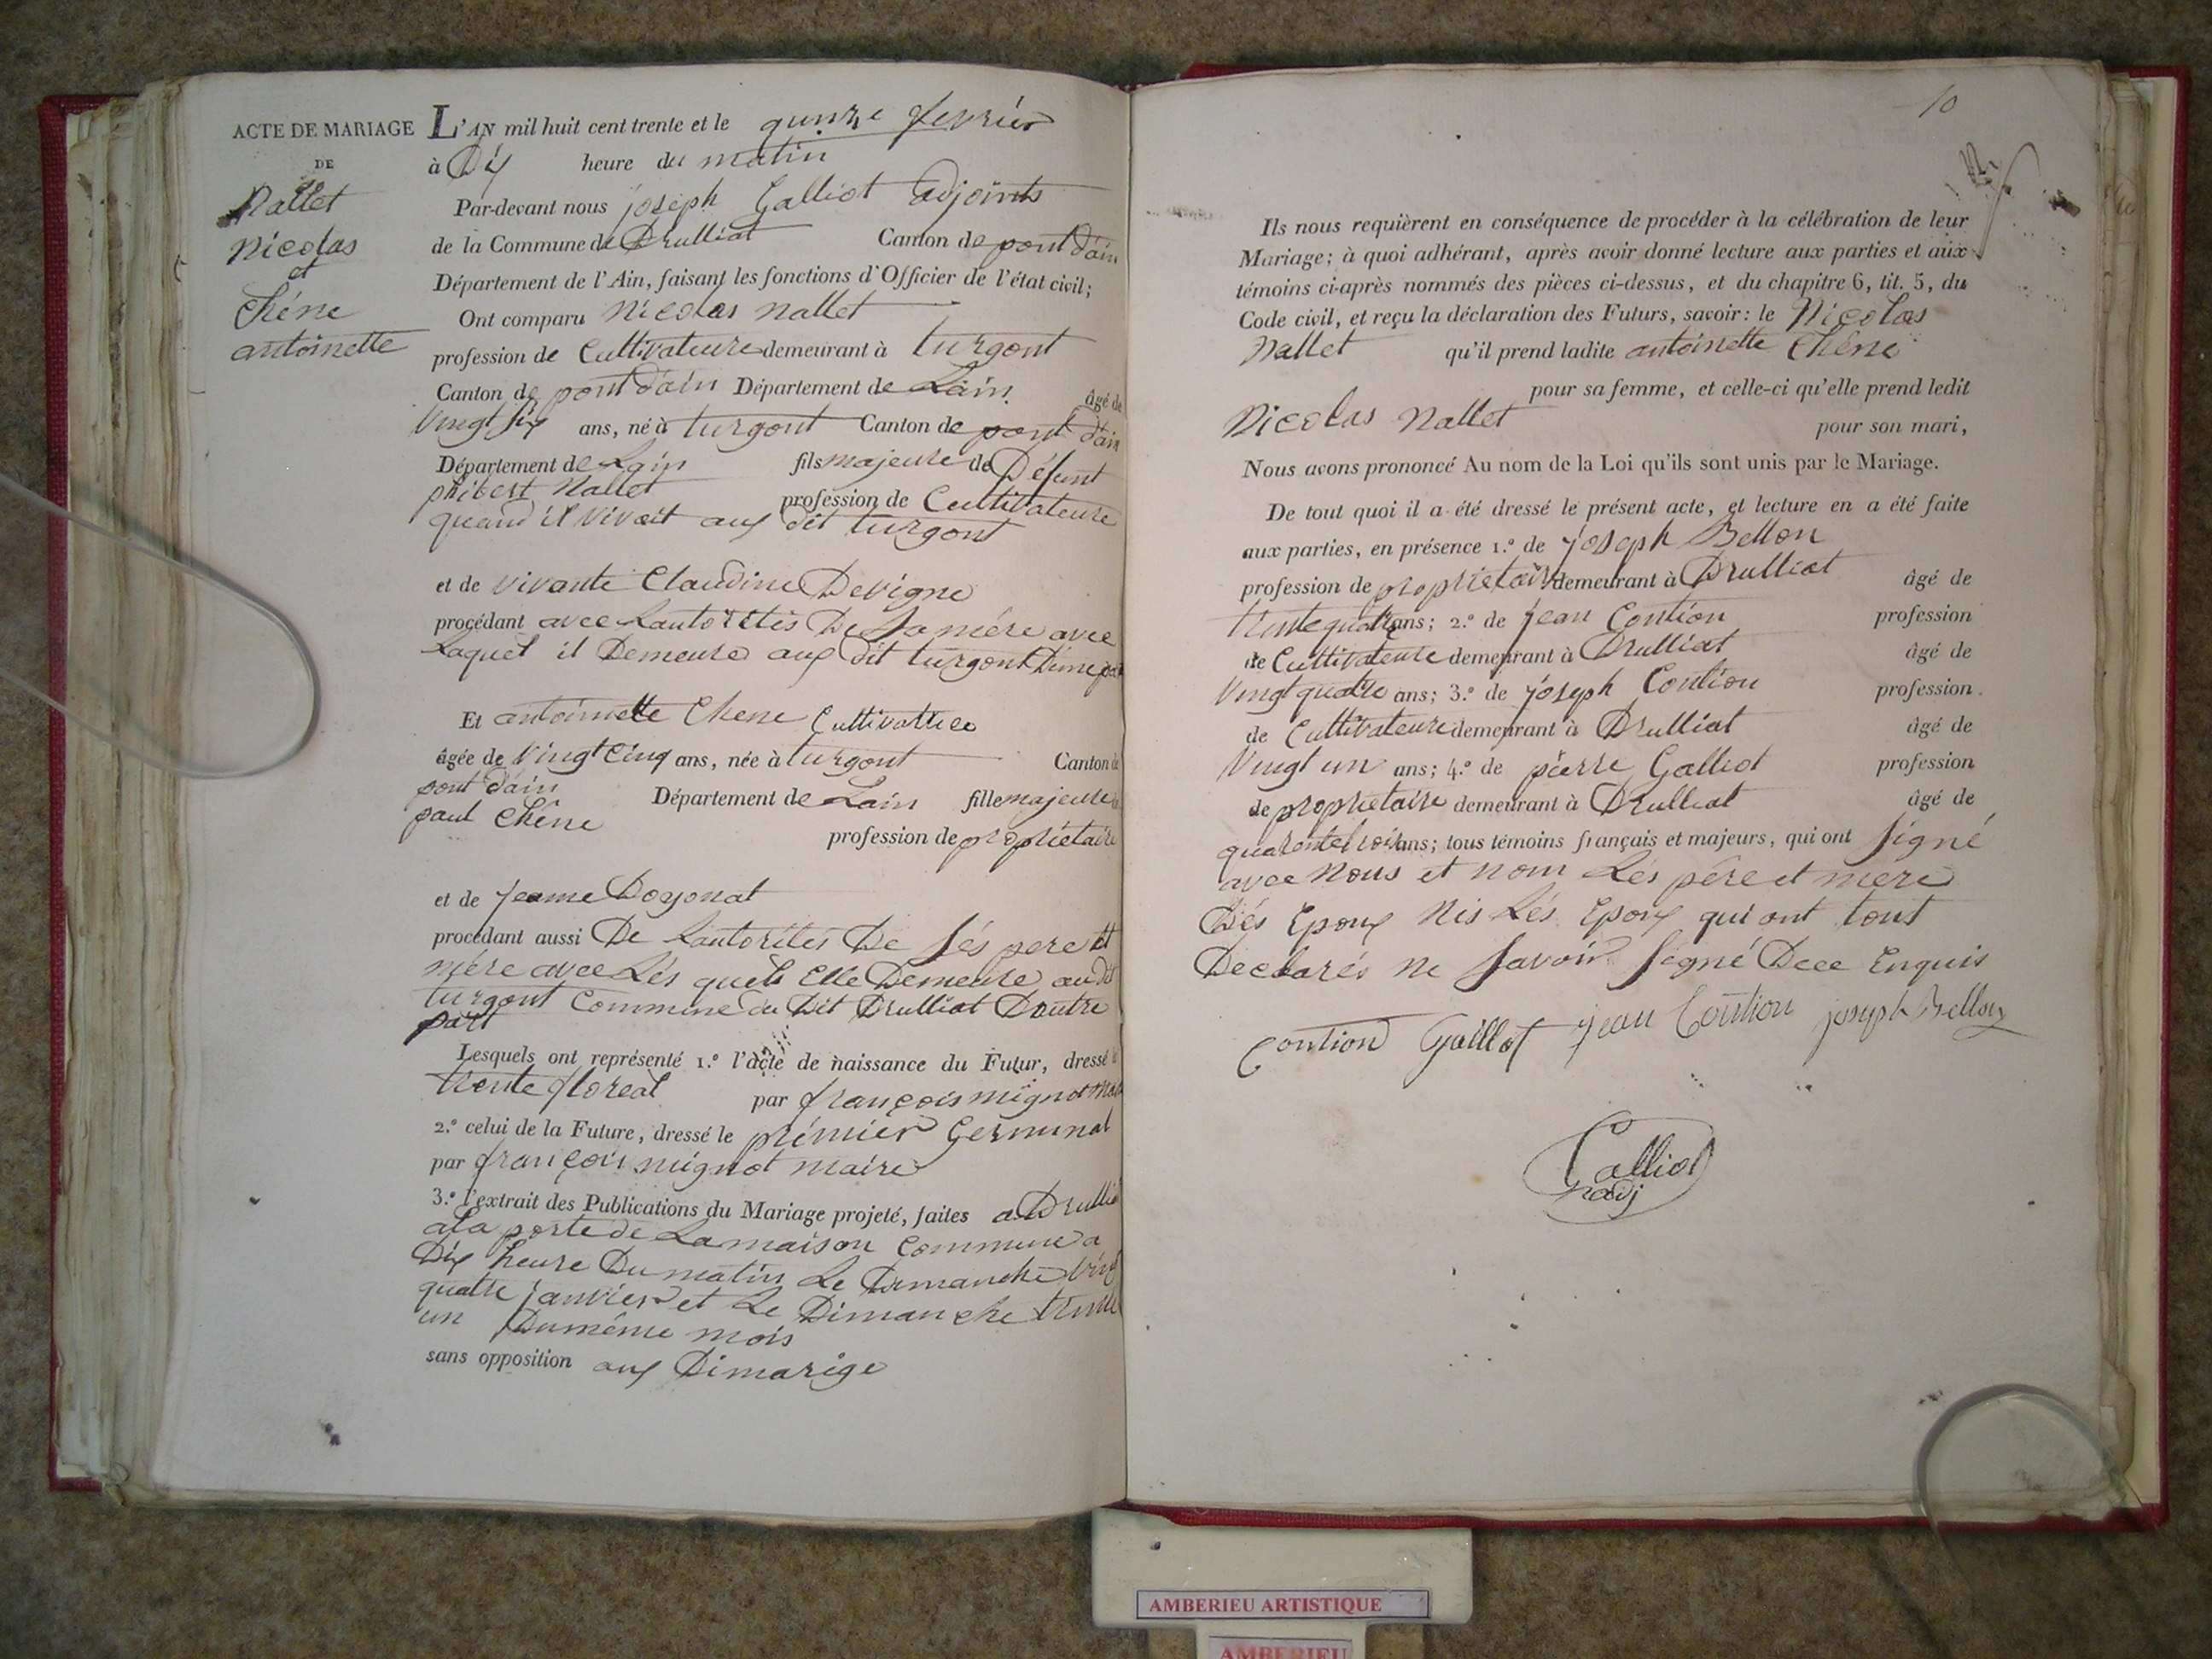 ACTE DE MARIAGE
DE
Nallet
Nicolas
et
Chêne
antoinette
L'AN mil huit cent trente et le quinze fevrier
à Dix heure du matin
Par-devant nous joseph Galliot Adjoints
de la Commune de Drulliat Canton de pont d'ain
Département de l'Ain, faisant les fonctions d'Officier de l'état civil;
Ont comparu Nicolas nallet
profession de Cultivateure demeurant à turgont
Canton de pont d'ain Département de Lain. âgé de
Vingt six ans, né à turgont Canton de pont d'ain
Département de Lain fils majeure de Défunt
phibert Nallet profession de Cultivateure
quand il vivait aux dit turgont
et de vivante Claudine Devigne
procédant avec Lautorités De Sa mére avec
Laquel il Demeure aux dit turgont
Et antoinette Chene Cultivatrice
âgée de Vingt Cinq ans, née à turgont Canton de
pont d'ain Département de Lain fille majeure
paul Chêne
profession de propriétaire
et de Jeanne Doyonat
procédant aussi De Lautorités De Sés pere et
mére avec Lés quels Elle Demeure au dit
turgont Commune du Dit Drulliat Dautre
part
Lesquels ont représenté 1.º l'acte de naissance du Futur, dressé le
trente floreal par françois mignot
2.º celui de la Future, dressé le prémier Germinal
par françois mignot maire
3.º l'extrait des Publications du Mariage projeté, faites a Drulliat
a la porte de La maison Commune a
Dix heure Du matin Le Dimanche Vingt
quatre janvier et Le Dimanche trente
un Du méme mois
sans opposition aux Dimarige
10
Ils nous requièrent en conséquence de procéder à la célébration de leur
Mariage; à quoi adhérant, après avoir donné lecture aux parties et aux
témoins ci-après nommés des pièces ci-dessus, et du chapitre 6, tit. 5, du
Code civil, et reçu la déclaration des Futurs, savoir: le Nicolas
Nallet qu'il prend ladite antoinette Chêne
pour sa femme, et celle-ci qu'elle prend ledit
Nicolas Nallet pour son mari,
Nous avons prononcé Au nom de la Loi qu'ils sont unis par le Mariage.
De tout quoi il a été dressé le présent acte, et lecture en a été faite
aux parties, en présence 1.º de joseph Bellon
profession de propriétair demeurant à Drulliat âgé de
trente quatre ans; 2.º de jean Contion profession
de Cultivateure demeurant à Drulliat âgé de
Vingt quatre ans; 3.º de joseph Contion profession
de Cultivateure demeurant à Drulliat âgé de
Vingt un ans; 4.º de piérre Galliot profession
de propriétaire demeurant à Drulliat âgé de
quarente trois ans; tous témoins français et majeurs, qui ont signé
avec nous et nom Lés pére et mere
Dés Epoux Nis Lés Epoux qui ont tout
Declarés ne Savoir Segné Dece Enquis
Contion Gaillot jean Contion joseph Bellon
Galliot
adj
AMBERIEU ARTISTIQUE
AMBERIEU